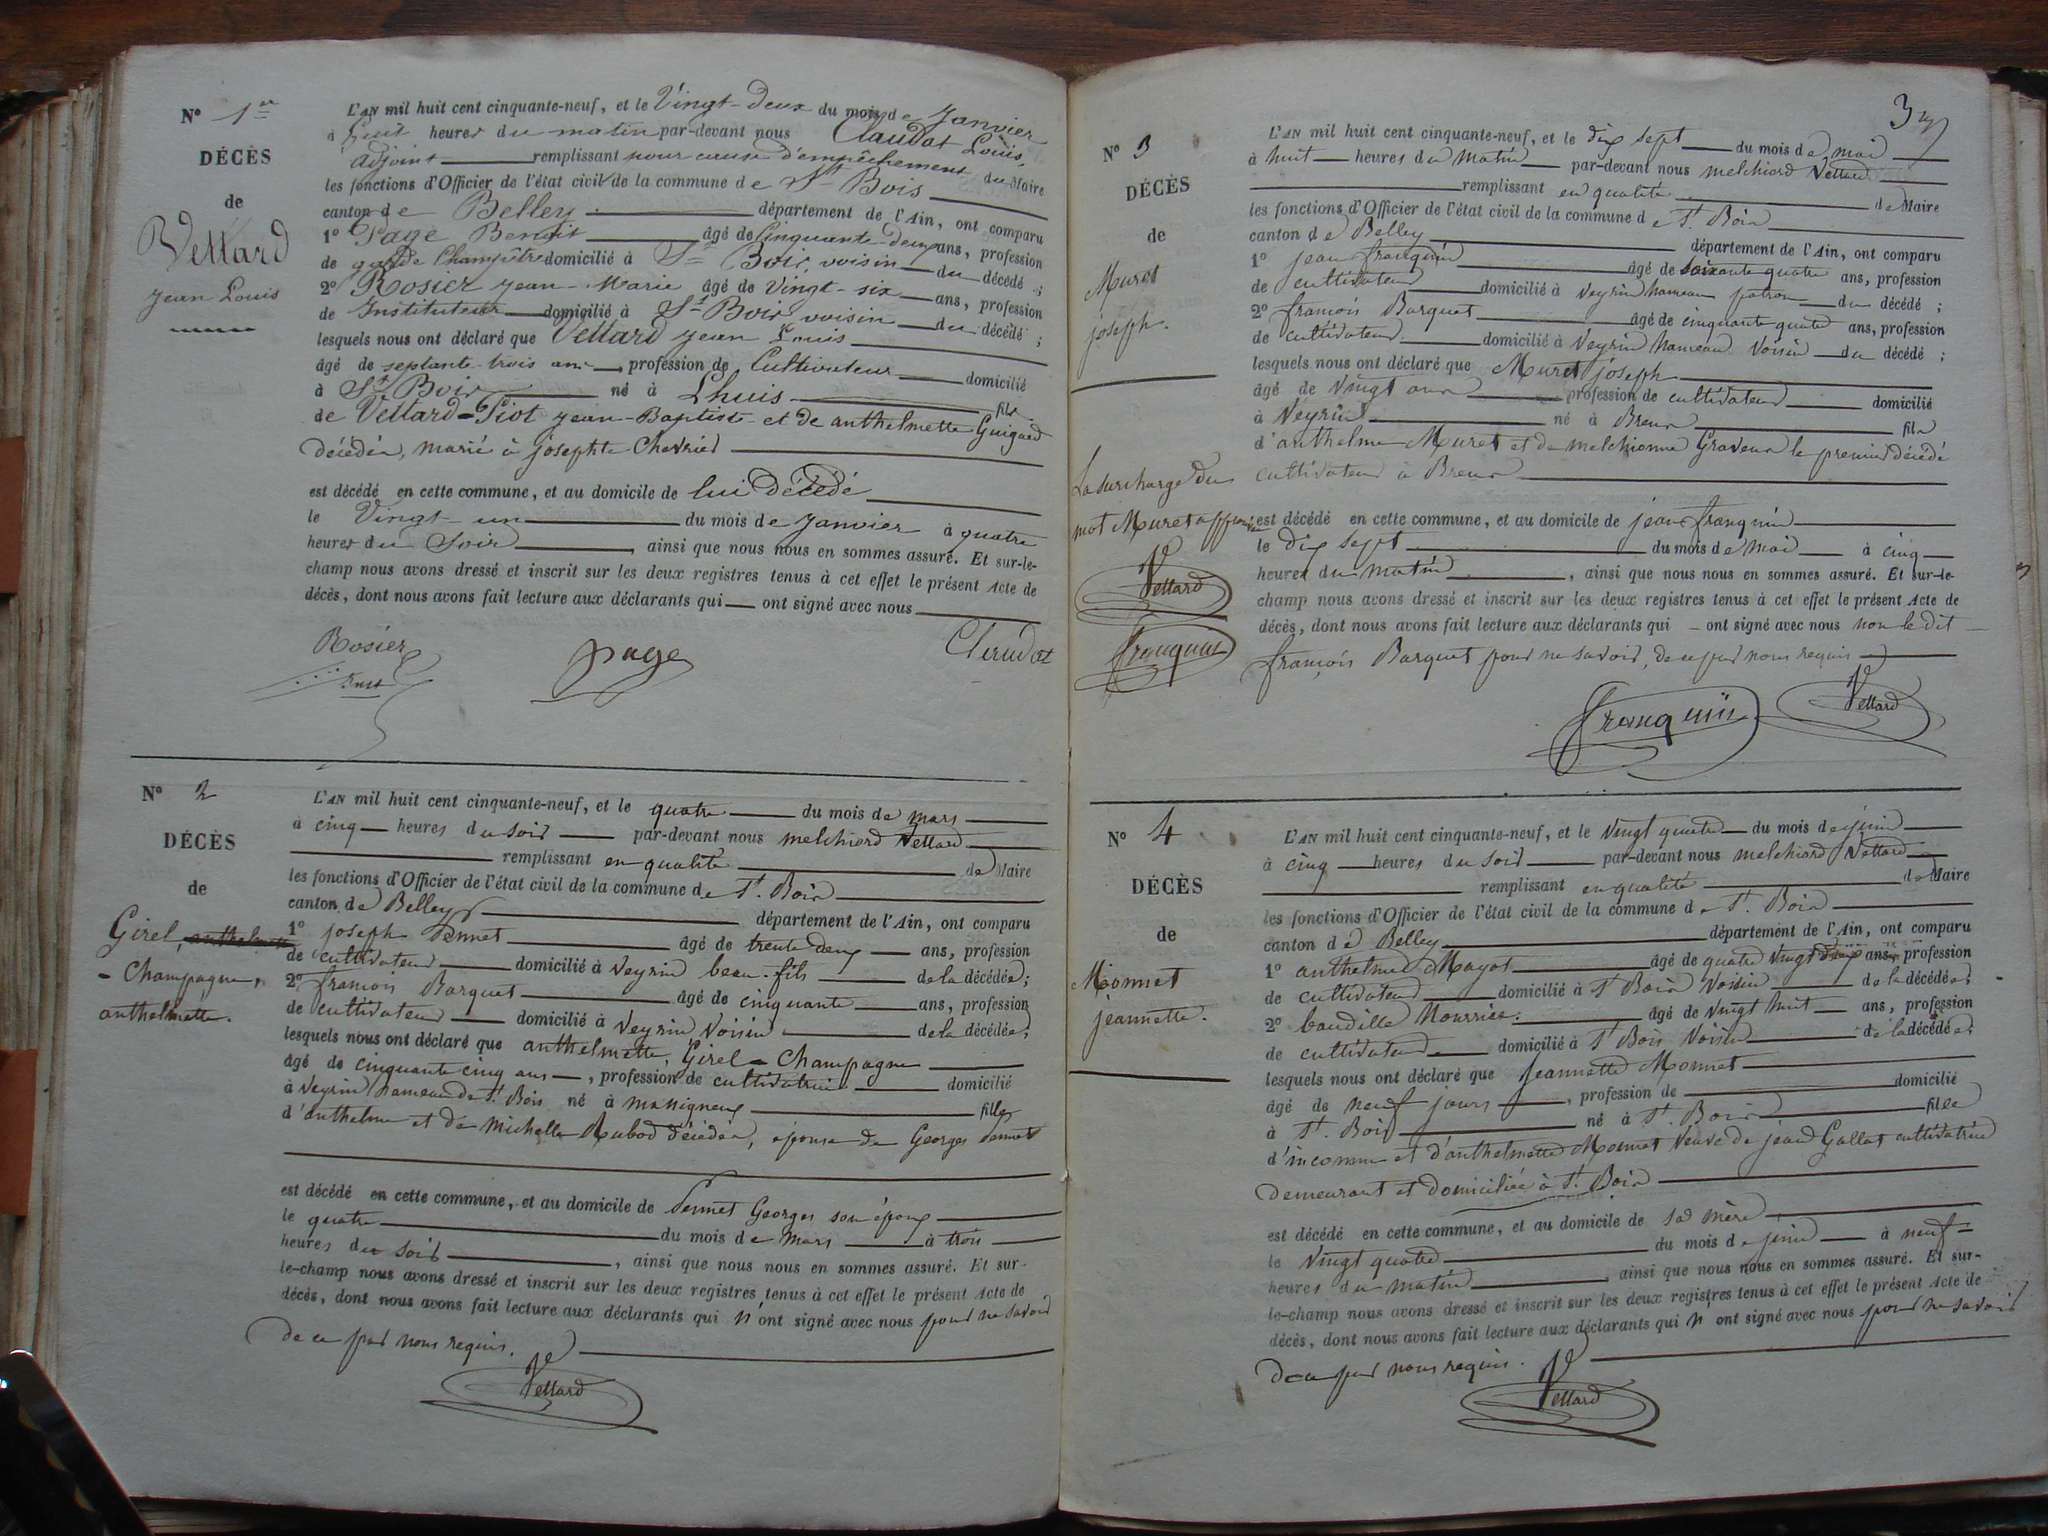 N° 1er
DÉCÈS
de
Vettard
jean Louis
L'AN mil huit cent cinquante-neuf, et le Vingt-deux du mois de janvier
à huit heures du matin par-devant nous Claudat Louis,
adjoint remplissant pour cause d'empêchement du Maire
les fonctions d'Officier de l'état civil de la commune de St Bois
canton de Belley département de l'Ain, ont comparu
1° Page Benoit âgé de cinquante-deux ans, profession
de garde Champêtre domicilié à St Bois, voisin du décédé ;
2° Rosier jean-Marie âgé de vingt-six ans, profession
de Instituteur domicilié à St Bois, voisin du décédé ;
lesquels nous ont déclaré que Vettard jean Louis
âgé de septante-trois ans, profession de Cultivateur domicilié
à St Bois né à Lhuis fils
de Vettard-Piot jean-Baptiste et de anthelmette Guigard
décédés, marié à josephte Chevrier
est décédé en cette commune, et au domicile de lui décédé
le Vingt-un du mois de janvier à quatre
heures du Soir, ainsi que nous nous en sommes assuré. Et sur-le-
champ nous avons dressé et inscrit sur les deux registres tenus à cet effet le présent Acte de
décès, dont nous avons fait lecture aux déclarants qui ont signé avec nous
Rosier page Claudat
Inst
N° 2
DÉCÈS
de
Girel, anthelmette
- Champagne,
anthelmette.
L'AN mil huit cent cinquante-neuf, et le quatre du mois de mars
à cinq heures du soir par-devant nous melchiord Vettard
remplissant en qualité de Maire
les fonctions d'Officier de l'état civil de la commune de St. Bois
canton de Belley département de l'Ain, ont comparu
1° joseph Pennet âgé de trente deux ans, profession
de cultivateur domicilié à Veyrin beau-fils de la décédée ;
2° françois Barquet âgé de cinquante ans, profession
de cultivateur domicilié à Veyrin Voisin de la décédée ;
lesquels nous ont déclaré que anthelmette, Girel-Champagne
âgé de cinquante cinq ans, profession de cultivatrice domicilié
à Veyrin hameau de St. Bois né à massigneux fille
d'anthelme et de michelle Rubod décédés, épouse de Georges Pennet
est décédé en cette commune, et au domicile de Pennet Georges son époux
le quatre du mois de Mars à trois
heures du soir, ainsi que nous nous en sommes assuré. Et sur-
le-champ nous avons dressé et inscrit sur les deux registres tenus à cet effet le présent Acte de
décès, dont nous avons fait lecture aux déclarants qui n'ont signé avec nous pour ne savoir
de ce par nous requis.
Vettard
3
N° 3
DÉCÈS
de
Muret
joseph.
La surcharge du
mot Muret approuvée
Vettard
franquin
L'AN mil huit cent cinquante-neuf, et le dix sept du mois de mai
à huit heures du matin par-devant nous melchiord Vettard
remplissant en qualité de Maire
les fonctions d'Officier de l'état civil de la commune de St. Bois
canton de Belley département de l'Ain, ont comparu
1° jean franquin âgé de soixante quatre ans, profession
de cultivateur domicilié à Veyrin hameau patron du décédé ;
2° françois Barquet âgé de cinquante quatre ans, profession
de cultivateur domicilié à Veyrin hameau Voisin du décédé ;
lesquels nous ont déclaré que Muret joseph
âgé de vingt ans profession de cultivateur domicilié
à Veyrin né à Brens fils
d'anthelme Muret et de melchionne Graveur le premier décédé
cultivateur à Brens
est décédé en cette commune, et au domicile de jean franquin
le dix sept du mois de mai à cinq
heures du matin, ainsi que nous nous en sommes assuré. Et sur-le-
champ nous avons dressé et inscrit sur les deux registres tenus à cet effet le présent Acte de
décès, dont nous avons fait lecture aux déclarants qui ont signé avec nous non le dit
françois Barquet pour ne savoir, de ce par nous requis
franquin Vettard
N° 4
DÉCÈS
de
Monnet
jeannette.
L'AN mil huit cent cinquante-neuf, et le vingt quatre du mois de juin
à cinq heures du soir par-devant nous melchiord Vettard
remplissant en qualité de Maire
les fonctions d'Officier de l'état civil de la commune de St. Bois
canton de Belley département de l'Ain, ont comparu
1° anthelme Mayot âgé de quatre vingt deux ans, profession
de cultivateur domicilié à St Bois Voisin de la décédée ;
2° baudille Nourrice. âgé de vingt huit ans, profession
de cultivateur domicilié à St Bois Voisin de la décédée ;
lesquels nous ont déclaré que Jeannette Monnet
âgé de neuf jours, profession de domicilié
à St. Bois né à St. Bois fille
d'inconnu et d'anthelmette Monnet Veuve de jean Gallat cultivatrice
demeurant et domiciliée à St. Bois
est décédé en cette commune, et au domicile de sa mère
le vingt quatre du mois de juin à neuf
heures du matin, ainsi que nous nous en sommes assuré. Et sur-
le-champ nous avons dressé et inscrit sur les deux registres tenus à cet effet le présent Acte de
décès, dont nous avons fait lecture aux déclarants qui n ont signé avec nous pour ne savoir
de ce par nous requis.
Vettard